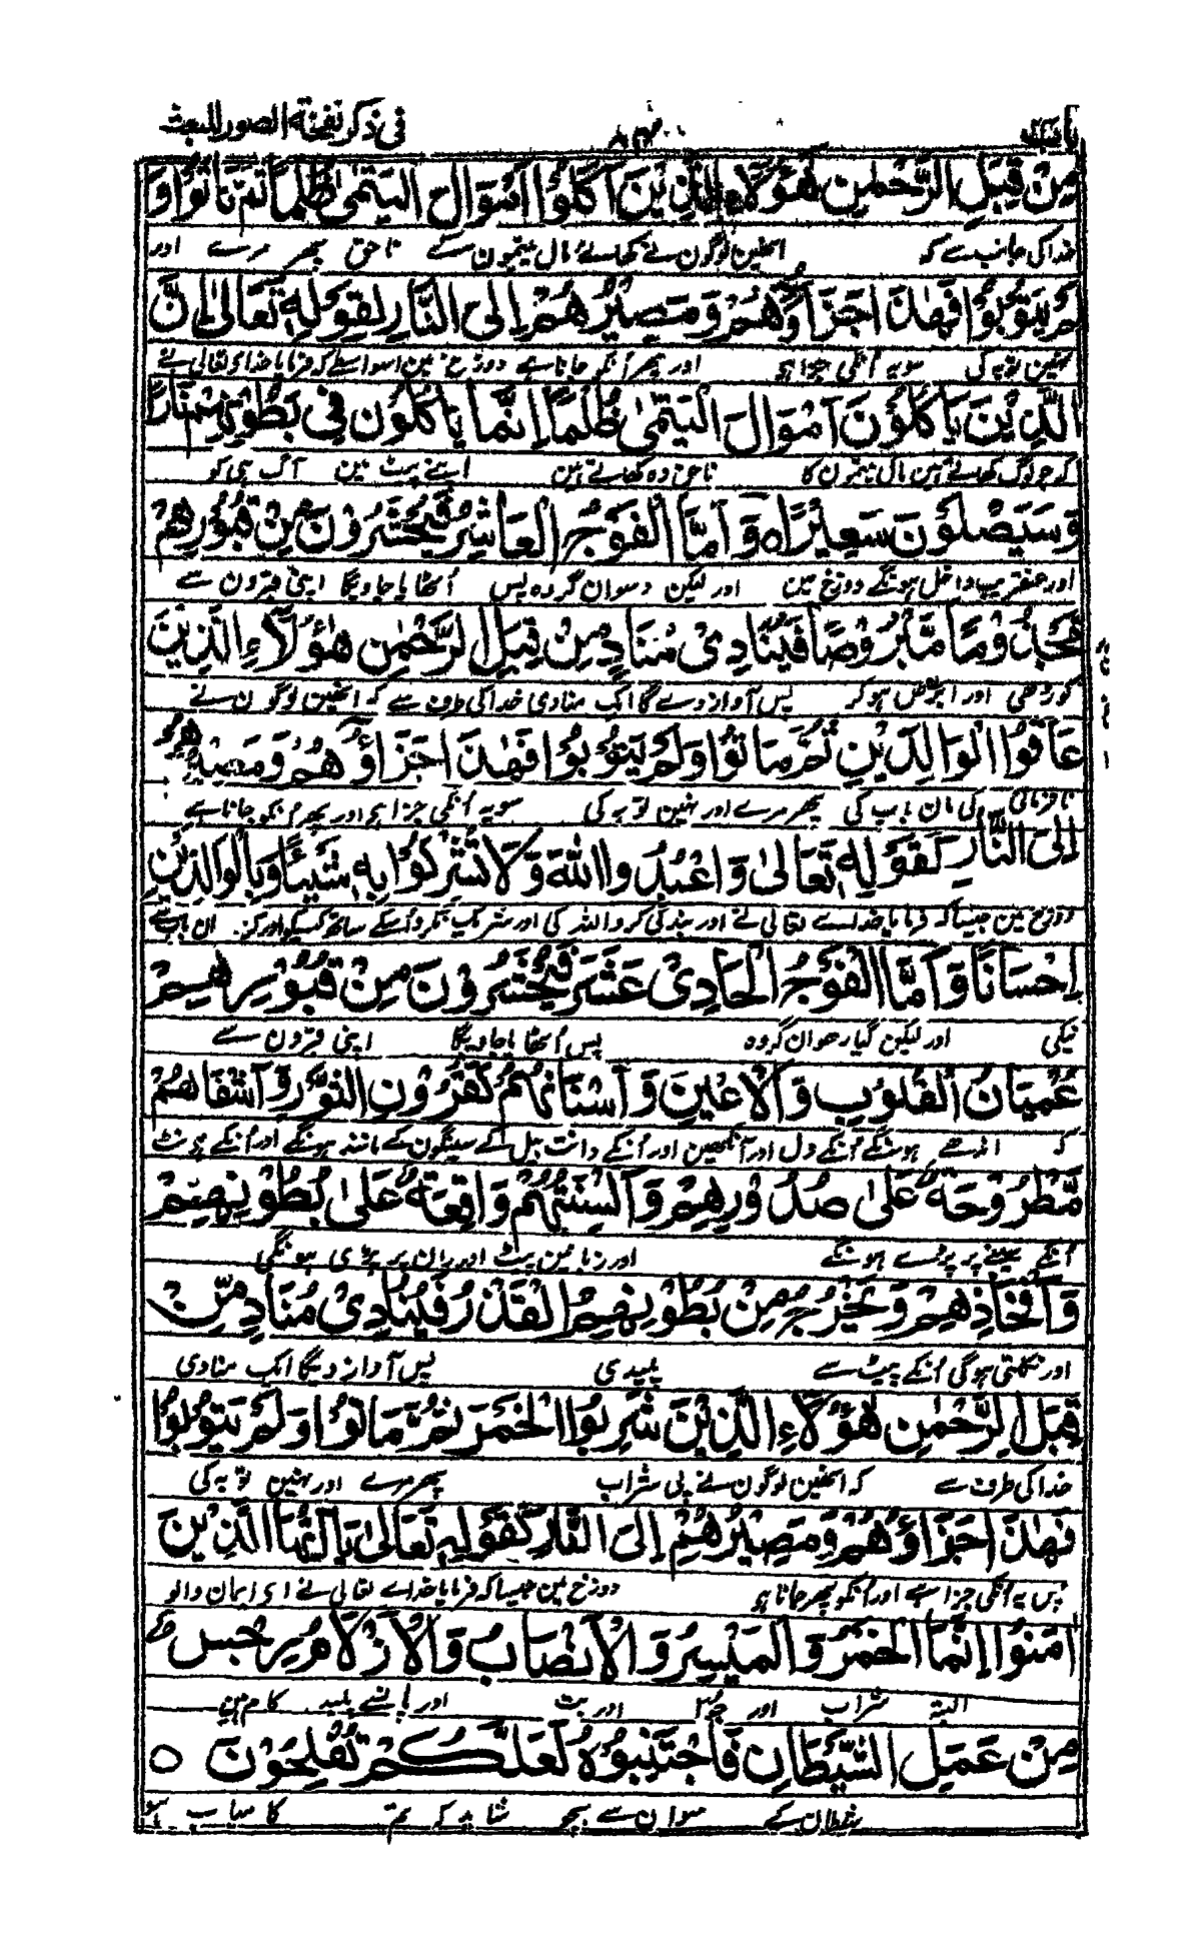 في ذكر نفخة الصور للبعث
مِنْ قِبَلِ الرَّحْمٰنِ هٰؤُلَاءِ الَّذِيْنَ اَكَلُوْا اَمْوَالَ الْيَتٰمٰى ظُلْمًا ثُمَّ مَاتُوْا وَ
خدا کی جانب سے کہ انھین لوگون نے کھائے مال یتیمون کے ناحق پھر مرے اور
لَمْ يَتُوْبُوْا فَهٰذَا جَزَاؤُهُمْ وَمَصِيْرُهُمْ اِلَى النَّارِ لِقَوْلِهٖ تَعَالٰى اِنَّ
نہین توبہ کی سو یہ اُنکی جزا ہو اور پھر اُنکو جانا ہے دوزخ مین اسواسطے کہ فرمایا خداے تعالی نے
الَّذِيْنَ يَاكُلُوْنَ اَمْوَالَ الْيَتٰمٰى ظُلْمًا اِنَّمَا يَاكُلُوْنَ فِيْ بُطُوْنِهِمْ نَارًا
کہ جو لوگ کھاتے ہین مال یتیمون کا ناحق وہ کھاتے ہین اپنے پیٹ مین آگ ہی کو
وَسَيَصْلَوْنَ سَعِيْرًا ه وَاَمَّا الْفَوْجُ الْعَاشِرُ فَيُحْشَرُوْنَ مِنْ قُبُوْرِهِمْ
اور عنقریب داخل ہونگے دوزخ مین اور لیکن دسوان گروہ پس اُٹھایا جاویگا اپنی قبرون سے
مَّبْرُوْصًا فَيُنَادِيْ مُنَادٍ مِنْ قِبَلِ الرَّحْمٰنِ هٰؤُلَاءِ الَّذِيْنَ
کوڑھی اور ابرص ہو کر پس آواز دے گا ایک منادی خدا کی طرف سے کہ انھین لوگون نے
عَاقُّوا الْوَالِدَيْنِ ثُمَّ مَاتُوْا وَلَمْ يَتُوْبُوْا فَهٰذَا جَزَاؤُهُمْ وَمَصِيْرُهُمْ
نافرمانی کی مان باپ کی پھر مرے اور نہین توبہ کی سو یہ اُنکی جزا ہو اور پھر اُنکو جانا ہے
اِلَى النَّارِ لِقَوْلِهٖ تَعَالٰى وَاعْبُدُوا اللّٰهَ وَلَا تُشْرِكُوْا بِهٖ شَيْئًا وَّبِالْوَالِدَيْنِ
دوزخ مین جیسا کہ فرمایا خداے تعالی نے اور بندگی کرو اللہ کی اور شریک نکرو اُسکے ساتھ کسیکو اور کرو مان باپ سے
اِحْسَانًا وَاَمَّا الْفَوْجُ الْحَادِيْ عَشَرَ فَيُحْشَرُوْنَ مِنْ قُبُوْرِهِمْ
نیکی اور لیکن گیارھوان گروہ پس اُٹھایا جاویگا اپنی قبرون سے
عُمْيَانُ الْقُلُوْبِ وَالْاَعْيُنِ وَاَسْنَانُهُمْ كَقُرُوْنِ الثَّوْرِ وَاَشْفَاهُهُمْ
کہ اندھے ہونگے اُنکے دل اور آنکھین اور اُنکے دانت بیل کے سینگون کے مانند ہونگے اور اُنکے ہونٹ
مَّطْرُوْحَةٌ عَلٰى صُدُوْرِهِمْ وَاَلْسِنَتُهُمْ وَاقِعَةٌ عَلٰى بُطُوْنِهِمْ
اُنکے سینے پر پڑے ہونگے اور زبانین پیٹ اور ران پر پڑی ہونگی
وَاَفْخَاذِهِمْ وَيَخْرُجُ مِنْ بُطُوْنِهِمُ الْقَذَرُ فَيُنَادِيْ مُنَادٍ مِّنْ
اور نکلتی ہوگی اُنکے پیٹ سے پلیدی پس آواز دیگا ایک منادی
قِبَلِ الرَّحْمٰنِ هٰؤُلَاءِ الَّذِيْنَ شَرِبُوا الْخَمْرَ ثُمَّ مَاتُوْا وَلَمْ يَتُوْبُوْا
خدا کی طرف سے کہ انھین لوگون نے پی شراب پھر مرے اور نہین توبہ کی
فَهٰذَا جَزَاؤُهُمْ وَمَصِيْرُهُمْ اِلَى النَّارِ كَقَوْلِهٖ تَعَالٰى يَا اَيُّهَا الَّذِيْنَ
پس یہ اُنکی جزا ہے اور اُنکو پھر جانا ہو دوزخ مین جیسا کہ فرمایا خداے تعالی نے ای ایمان والو
اٰمَنُوْا اِنَّمَا الْخَمْرُ وَالْمَيْسِرُ وَالْاَنْصَابُ وَالْاَزْلَامُ رِجْسٌ
البتہ شراب اور جُوا اور بت اور پانسے پلید کام ہین
مِنْ عَمَلِ الشَّيْطَانِ فَاجْتَنِبُوْهُ لَعَلَّكُمْ تُفْلِحُوْنَ ه
شیطان کے سو ان سے بچو شاید کہ تم کامیاب ہو